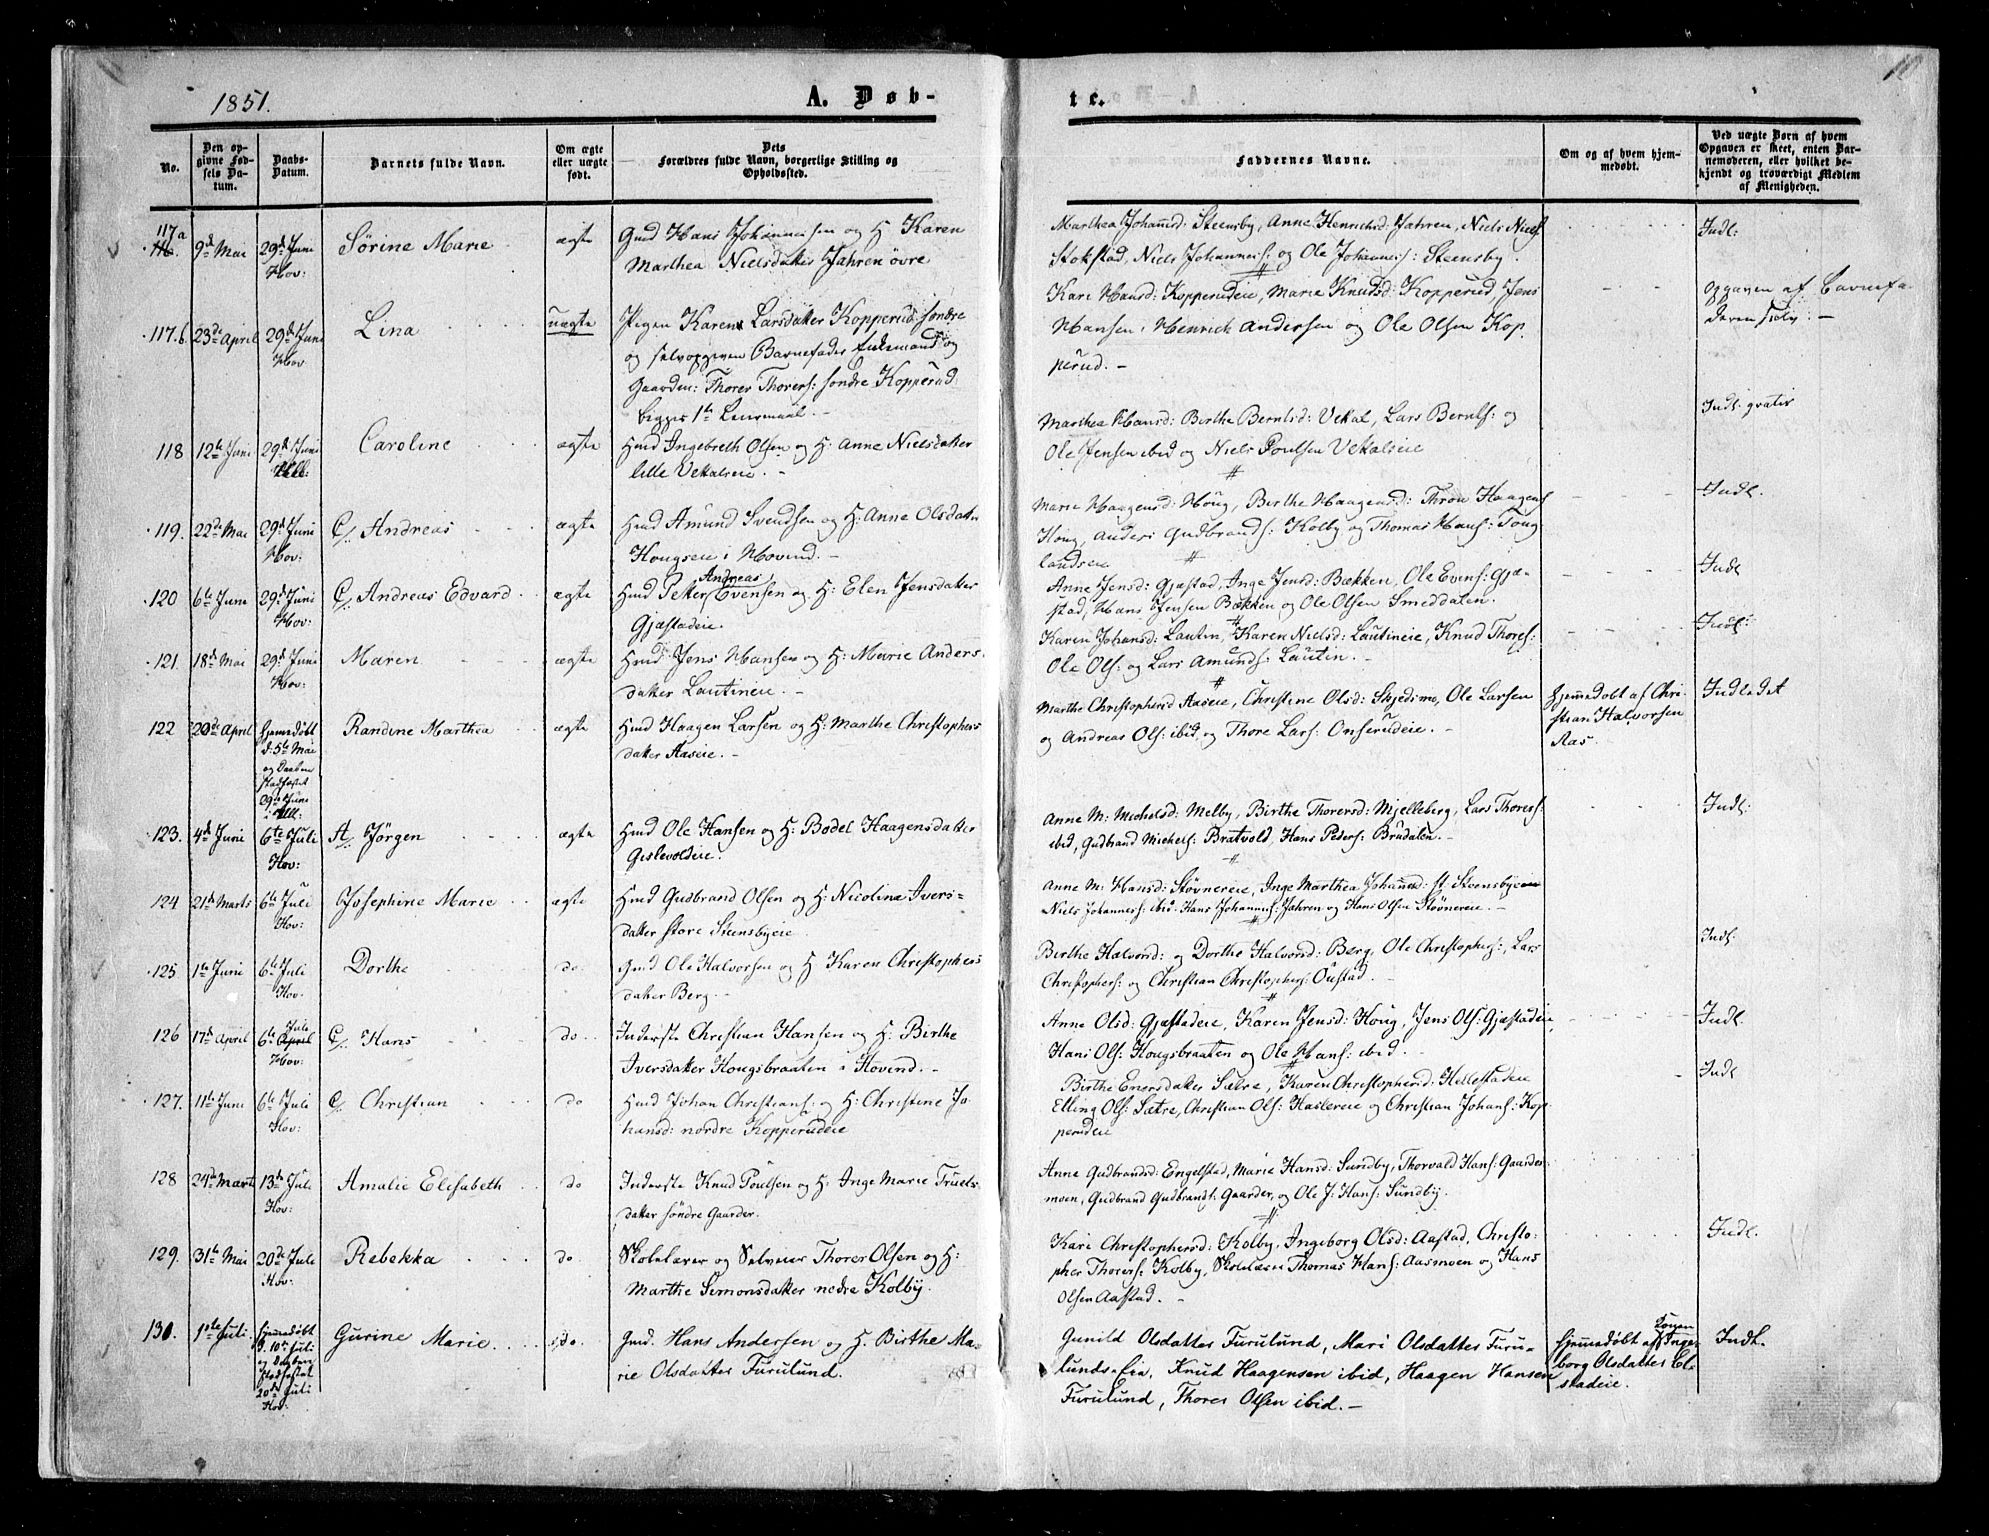 1851.
A. Døb-
te.
10
No.
Den op-
givne Fød-
sels Da-
tum.
Daabs-
Datum.
Barnets fulde Navn.
Om ægte
eller uægte
født.
Dets
Forældres fulde Navn, borgerlige Stilling og
Opholdssted.
Faddernes Navne.
Om og af hvem hjem-
medøbt.
Ved uægte Børn af hvem
Opgaven er skeet, enten Bar-
nemoderen, eller hvilket be-
kjendt og troværdigt Medlem
af Menigheden.
117a
9d Mai
29d Juni
Hov:
Sørine Marie
ægte
Gmd Hans Johannesen og H. Karen
Marthea Nielsdatter Jahren øvre
Marthea Johannsd: Steensby, Anne Henrichsd: Jahren, Niels Niels:
Stokstad, Niels Johannes: og Ole Johannes: Steensby.
Indl:
117.b
23de April
29d Juni
Hov
Lina
uægte
Pigen Karen Larsdatter Kopperud søndre
og selvopgiven Barnefader Enkemand og
Gaardm: Thorer Thorers: søndre Kopperud
begges 1ste Leiermaal. -
Kari Hansd: Kopperudeie, Marie Knudsd: Kopperud, Jens
Hansen, Henrick Andersen og Ole Olsen Kop
perud. -
Opgaven af Barnefa-
deren selv: -
118
12te Juni
29d Juni
Caroline
ægte
Hmd Ingebreth Olsen og H: Anne Nielsdatter
lille Vekalseie. -
Marthea Hansd: Berthe Berntsd: Vekal, Lars Bernts: og
Ole Jensen ibid og Niels Poulsen Vekalseie
Indl: gratis
119.
22de Mai
29d Juni
Hov:
C/. Andreas
ægte
Hmd Amund Svendsen og H: Anne Olsdatter
Hougseie i Hovind. -
Marie Haagensd: Houg, Berthe Haagensd: Thron Haagens:
Houg, Anders Gudbrands: Kolby og Thomas Hans: Toug
landseie
Indl.
120
6te Juni
29d Juni
Hov:
C/. Andreas Edvard
ægte
Hmd Peter Andreas Evensen og H: Elen Jensdatter
Gjæstadeie.
Anne Jensd: Gjæstad, Inge Jensd: Bækken, Ole Evens: Gjæ-
stad, Hans Jensen Bækken og Ole Olsen Smeddalen.
Indl
121.
18d Mai
29d Juni
Hov:
Maren
ægte
Hmd Jens Hansen og H: Marie Anders
datter Lautineie. -
Karen Johansd: Lautin, Karen Nielsd: Lautineie, Knud Thores:
Ole Ols: og Lars Amunds: Lautin. -
Indl:
122
20de April
hjemmedøbt
d: 5te Mai
og Daaben
stadfæstet
29de Juni
Randine Marthea
ægte
Hmd Haagen Larsen og H: Marthe Christophers
datter Aaseie.
Marthe Christophersd Aaseie, Christine Olsd: Skjedsmo, Ole Larsen
og Andreas Ols: ibid, og Thore Lars: Onserudeie. -
hjemmedøbt af Chri-
stian Halvorsen
Aas. -
Indledet
123.
4d Juni
6te Juli
Hov:
A/. Jørgen
ægte
Hmd Ole Hansen og H: Bodel Haagensdatter
Gislevoldeie.
Anne M: Michelsd: Melby, Birthe Thorersd: Mjelleberg, Lars Thorers:
ibid, Gudbrand Michels: Bratvold, Hans Peders: Brudalen. -
Indl:
124
21de Marts
6te Juli
Hov:
Josephine Marie
ægte
Hmd Gudbrand Olsen og H: Nicoline Ivers-
datter store Steensbyeie
Anne M: Hansd: Støvnereie, Inge Marthea Johannesd: st. Steensbyeie
Niels Johannes: ibid. Hans Johannes: Jahren og Hans Olsen Støvnereie. -
125.
1ste Juni
6te Juli
Hov.
Dorthe
do.
Gmd Ole Halvorsen og H Karen Christophers
datter Berg. -
Birthe Halvorsd: og Dorthe Halvorsd: Berg, Ole Christophers:, Lars
Christophers: og Christian Christophers: Oustad. -
Indl:
126
17de April
6te Juli
Hov:
C/. Hans
do
Inderste Christian Hansen og H: Birthe
Iversdatter Hougsbraaten i Hovind. -
Anne Olsd: Gjæstadeie, Karen Jensd: Houg, Jens Ols: Gjæstadeie,
Hans Ols: Hougsbraaten og Ole Hans: ibid. -
Indl.
127.
11te Juni
6te Juli
Hov:
C/. Christian
do
Hmd Johan Christians: og H: Christine Jo
hansd: nordre Kopperudeie
Birthe Enersdatter Sætre, Karen Christophersd: Hellestadeie
Elling Ols: Sætre, Christian Ols: Haslereie og Christian Johans: Kop-
perudeie
Indl
128
24de Marts
13de Juli
Hov:
Amalie Elisabeth
do
Inderste Knud Poulsen og H. Inge Marie Truels-
datter søndre Gaarder.
Anne Gudbrandsd: Engelstad, Marie Hansd: Sundby, Thorvald Hans: Gaarder-
moen, Gudbrand Gudbrands: Gaarder, og Ole J: Hans: Sundby.
129.
31te Mai
20de Juli
Hov:
Rebekka
do
Skolelærer og Selveier Thorer Olsen og H:
Marthe Simonsdatter nedre Kolby.
Kari Christophersd: Kolby, Ingeborg Olsd: Aastad, Christo-
pher Thorers: Kolby, Skolelærer Thomas Hans: Aasmoen og Hans
Olsen Aastad. -
Indl.
130.
1ste Juli
hjemmedøbt
d. 10de Juli
og Daaben
stadfæstet
20de Juli
Hov:
Gurine Marie
do.
Gmd. Hans Andersen og H. Birthe Ma-
rie Olsdatter Furulund.
Gunild Olsdatter Furulund, Mari Olsdatter Furu-
lunds-Eie, Knud Haagensen ibid, Haagen Hansen
Furulund, Thorer Olsen ibid. -
hjemmedøbt af Inge-
borg Olsdatter El-
stadeie.
Indl.